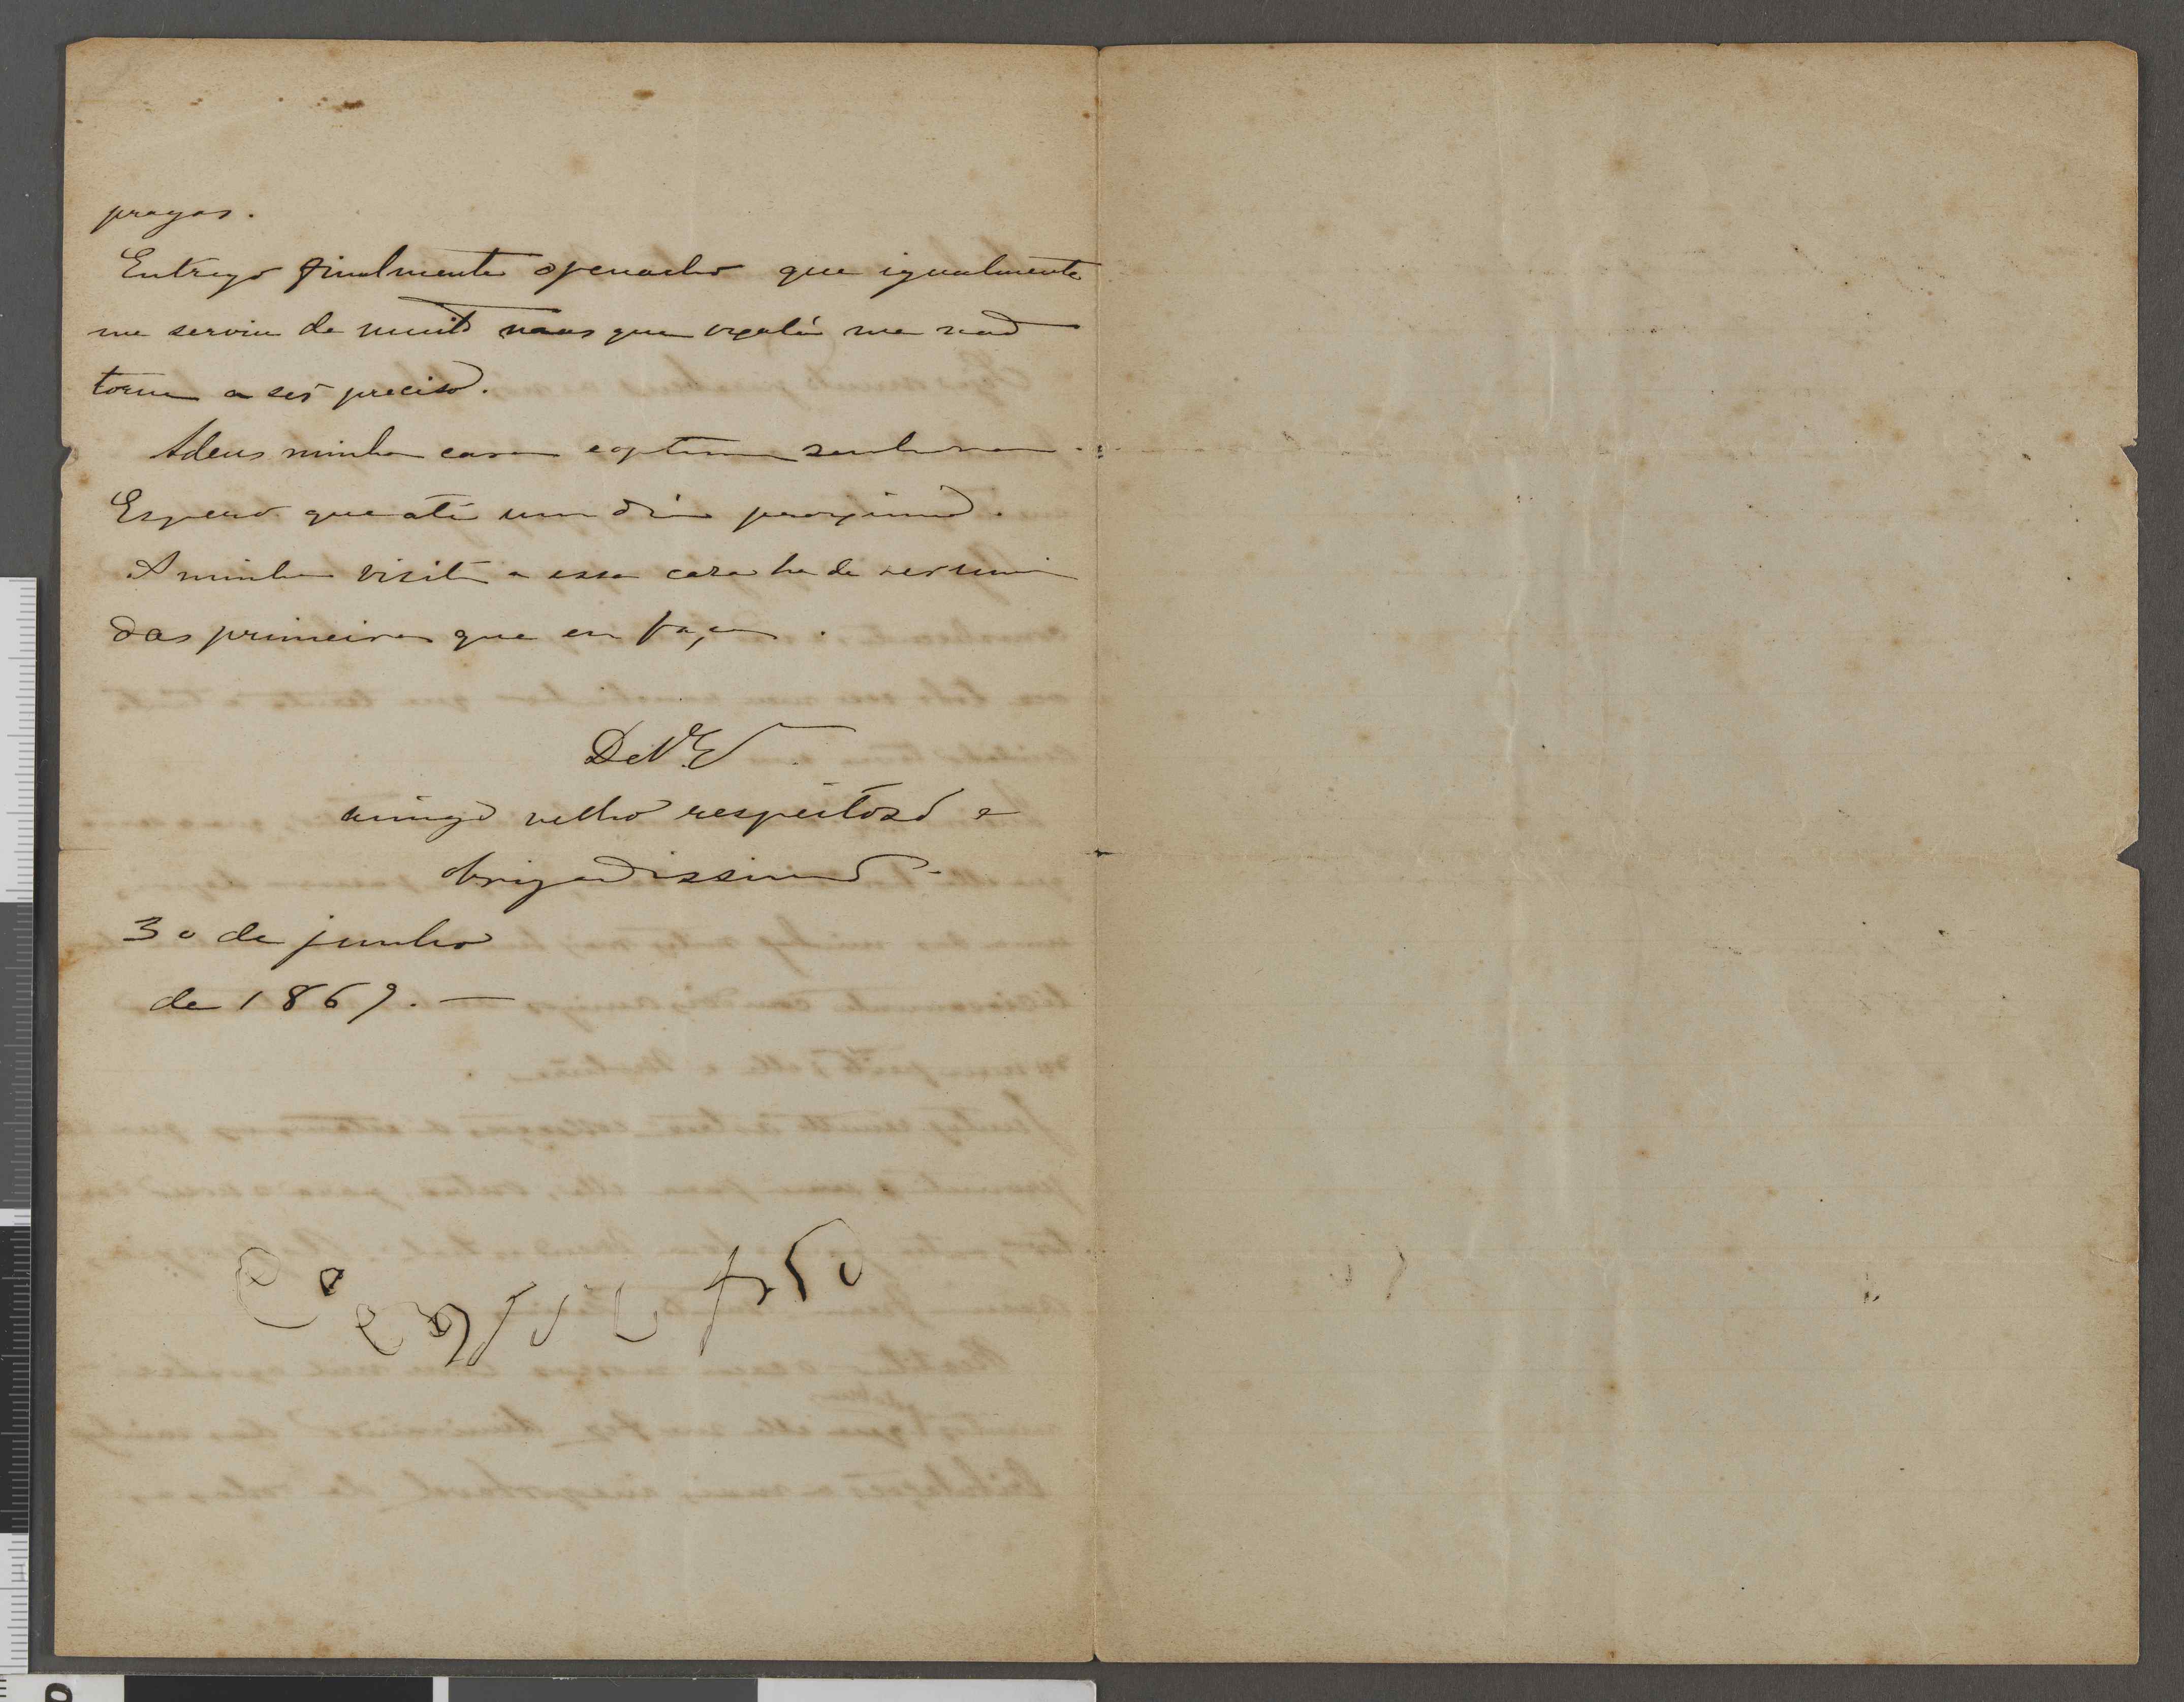 pragas.
Entrego finalmente o penacho que igualmente
me serviu de muito mas que oxalá me não
torne a ser preciso.
Adeus minha cara e optima senhora.
Espero que até um dia proximo.
A minha visita a essa casa ha de ser uma
das primeiras que eu faça.
De V. E.
amigo velho respeitoso e
obrigadissimo
30 de junho
de 1869. —